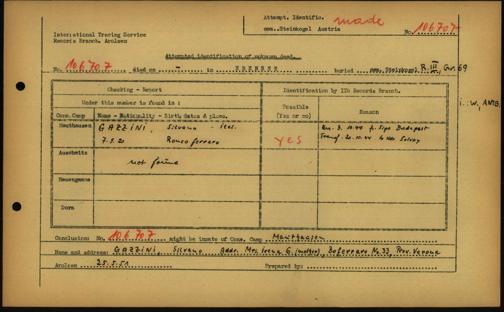 Attempt. Identific. made
International Tracing Service
Records Branch. Arolsen
cem. Steinkogel Austria No. 106707
Attempted identification of unknown dead.
No. 106707 died on - in EBENSEE buried cem. Steinkogel R. III Gr. 69
Checking - Report
Identification by ITS Records Branch.
Under this number is found in :
Possible (Yes or no)
Reason
Conc. Camp
Name - Nationality - Birth dates & place.
Mauthausen
GAZZINI, Silvano - Ital.
7.5.21 Roncoferraro
YES
Auschwitz
not found
Neuengamme
Dora
Conclusion: No. 106707 might be inmate of Conc. Camp Mauthausen
Name and address: GAZZINI, Silvano Addr. Mrs. Irena G. (mother) No 33, Prov. Verona
Arolsen 25.5.51 Prepared by: